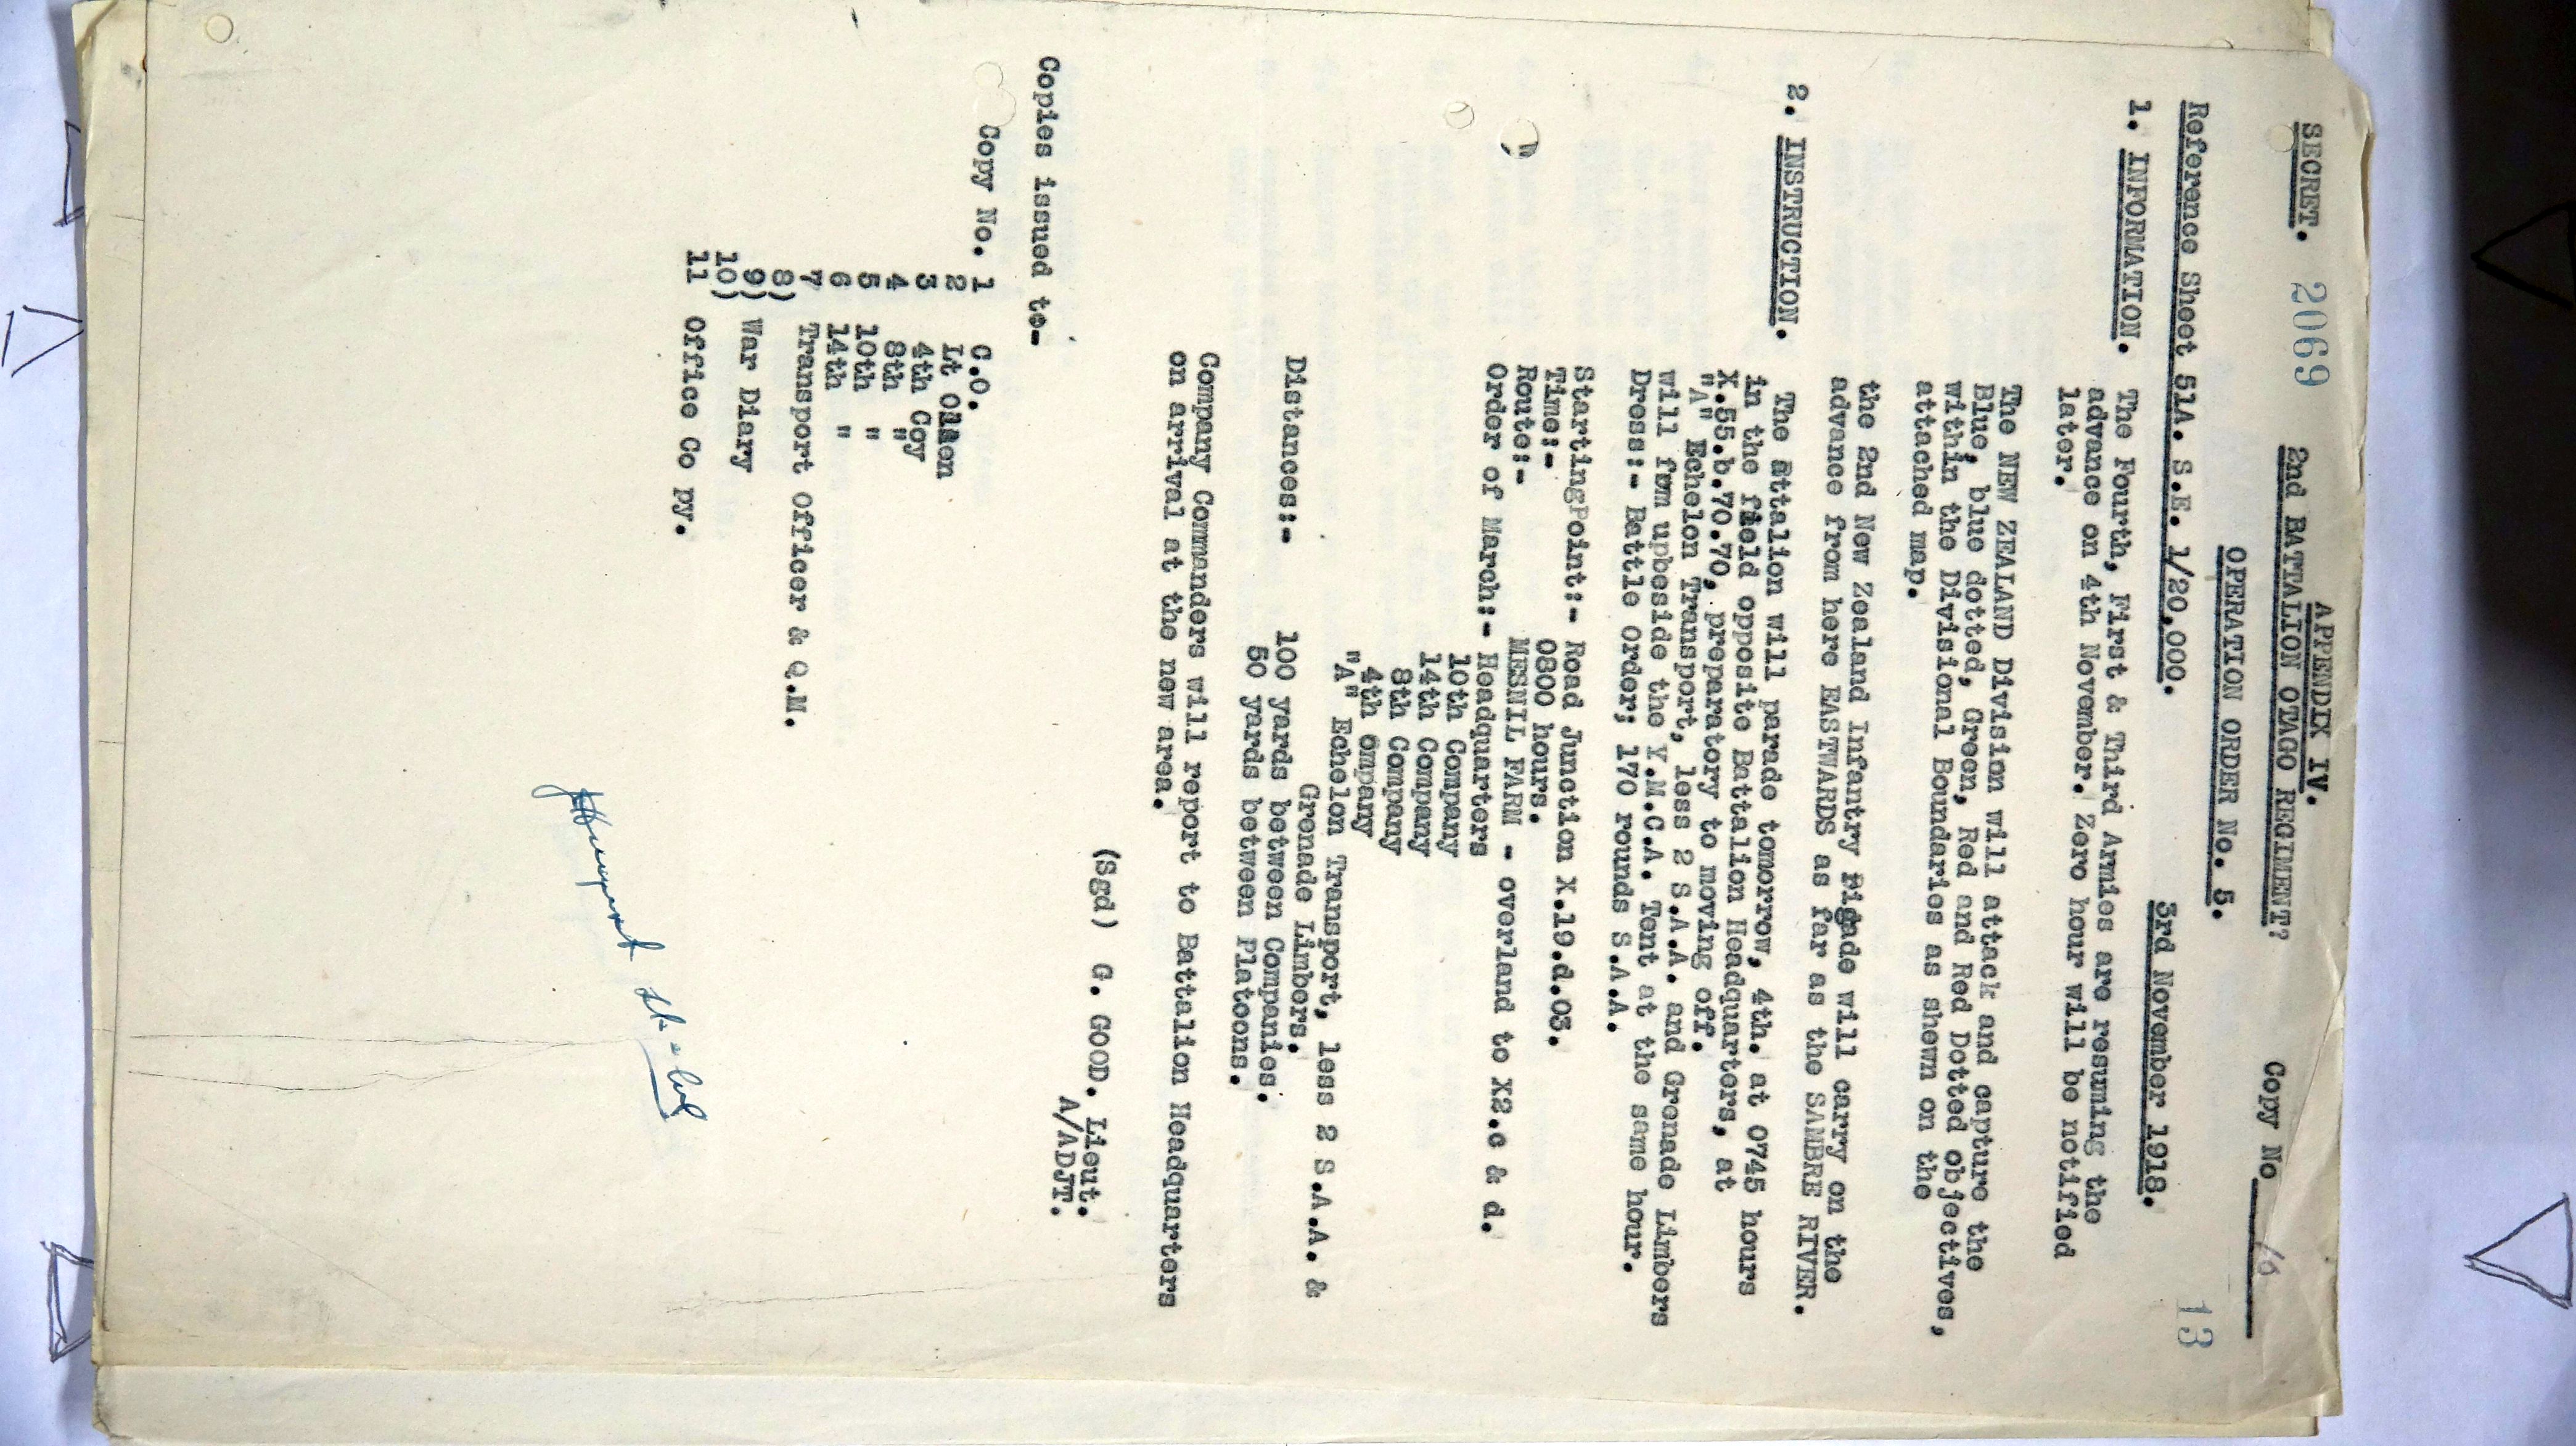 APPENDIX IV.
SECRET. 2069 2nd BATTALION OTAGO REGIMENT? Copy No 10
OPERATION ORDER No. 5.
13
Reference Sheet 51A. S.E. 1/20,000. 3rd November 1918.
1. INFORMATION. The Fourth, First & Third Armies are resuming the
advance on 4th November. Zero hour will be notified
later.
The NEW ZEALAND Division will attack and capture the
Blue, blue dotted, Green, Red and Red Dotted objectives,
within the Divisional Boundaries as shewn on the
attached map.
the 2nd New Zealand Infantry will carry on the
advance from here EASTWARDS as far as the SAMBRE RIVER.
2. INSTRUCTION. The attalion will parade tomorrow, 4th. at 0745 hours
in the field opposite Battalion Headquarters, at
X.55.b.70.70, preparatory to moving off.
"A" Echelon Transport, less 2 S.A.A. and Grenade Limbers
will fom upbeside the Y.M.C.A. Tent at the same hour.
Dress:- Battle Order; 170 rounds S.A.A.
StartingPoint:- Road Junction X.19.d.03.
Time:- 0800 hours.
Route:- MESNIL FARM - overland to X2.c & d.
Order of March:- Headquarters
10th Company
14th Company
8th Company
4th ompany
"A" Echelon Transport, less 2 S.A.A. &
Grenade Limbers.
Distances:- 100 yards between Companies.
50 yards between Platoons.
Company Commanders will report to Battalion Headquarters
on arrival at the new area.
(Sgd) G. GOOD. Lieut.
A/ADJT.
Copies issued to-
Copy No. 1 C.O.
2 Lt
3 4th Coy
4 8th "
5 10th "
6 14th "
7 Transport Officer & Q.M.
8)
9) War Diary
10)
11 Office Co py.